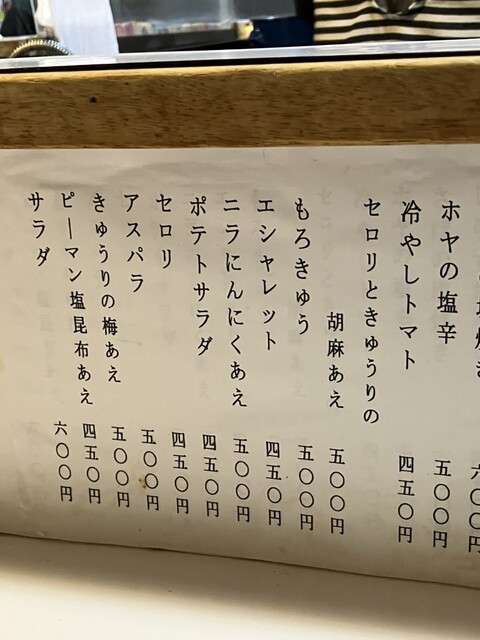 六〇〇円
ホヤの塩辛 五〇〇円
冷やしトマト 四五〇円
セロリときゅうりの
胡麻あえ 五〇〇円
もろきゅう 五〇〇円
エシャレット 四五〇円
ニラにんにくあえ 五〇〇円
ポテトサラダ 四五〇円
セロリ 四五〇円
アスパラ 五〇〇円
きゅうりの梅あえ 五〇〇円
ピーマン塩昆布あえ 四五〇円
サラダ 六〇〇円